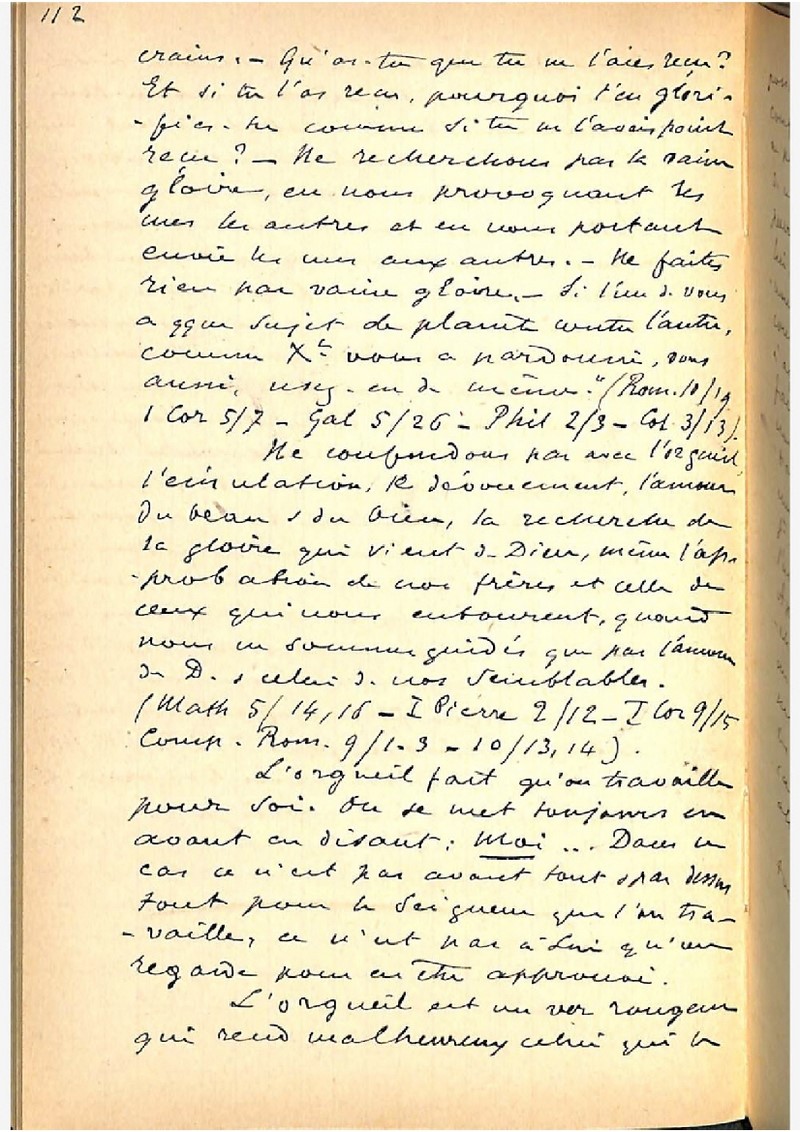 112
crains. – Qu'as-tu que tu ne l'aies reçu?
Et si tu l'as reçu, pourquoi t'en glori-
-fies-tu comme si tu ne l'avais point
reçu? – Ne recherchons pas la vaine
gloire, en nous provoquant les
unes les autres et en nous portant
envie les uns aux autres. – Ne faites
rien par vaine gloire. – Si l'un de vous
a qqu sujet de plainte contre l'autre,
comme Xt vous a pardonné, vous
aussi, usez-en de même." (Rom. 10/19
1 Cor 5/7 – Gal 5/26 – Phil 2/3 – Col 3/13).
Ne confondons pas avec l'orgueil,
l'émulation, le dévouement, l'amour
du beau & du bien, la recherche de
la gloire qui vient de Dieu, même l'ap-
-probation de nos frères et celle de
ceux qui nous entourent, quand
nous ne sommes guidés que par l'amour
de D. & celui de nos semblables.
(Math 5/14,16 – I Pierre 2/12 – I Cor 9/15
Comp. Rom. 9/1-3 – 10/13,14).
L'orgueil fait qu'on travaille
pour soi. On se met toujours en
avant en disant: Moi ... Dans ce
cas ce n'est pas avant tout & par dessus
tout pour le Seigneur que l'on tra-
-vaille, ce n'est pas à Lui qu'on
regarde pour en être approuvé.
L'orgueil est un ver rongeur
qui rend malheureux celui qui le